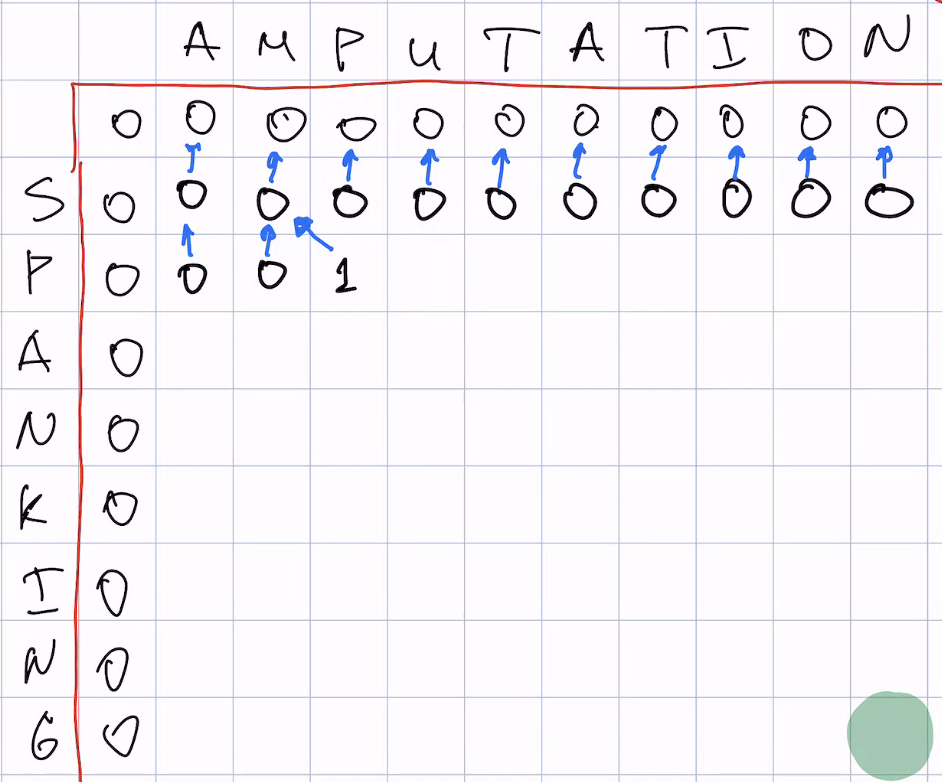 A M P U T A T I O N
0 0 0 0 0 0 0 0 0 0 0
S 0 0 0 0 0 0 0 0 0 0 0
P 0 0 0 1
A 0
N 0
K 0
I 0
N 0
G 0